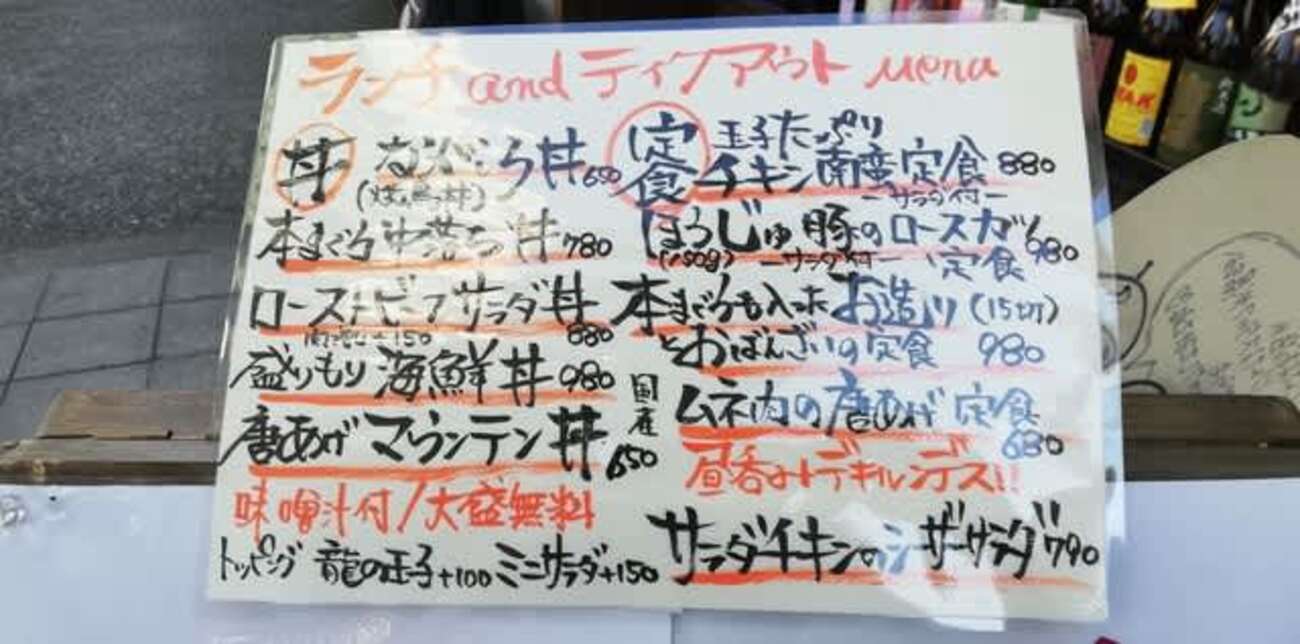 ランチ and テイクアウト menu
丼
丼 650
(焼鳥丼)
本まぐろ中落ち丼 780
ローストビーフサラダ丼 880
+150
盛りもり海鮮丼 980
唐あげマウンテン丼 国産 650
味噌汁付/大盛無料
トッピング 龍の玉子+100 ミニサラダ+150
定食
玉子たっぷり
チキン南蛮定食 880
ーサラダ付ー
ほうじゅ豚のロースカツ 980
(150g) ーサラダ付ー 定食
本まぐろも入ったお造り(15切)
とおばんざいの定食 980
ムネ肉の唐あげ定食 680
昼呑みトデキルンデス!!
サラダチキンのシーザーサラダ 790